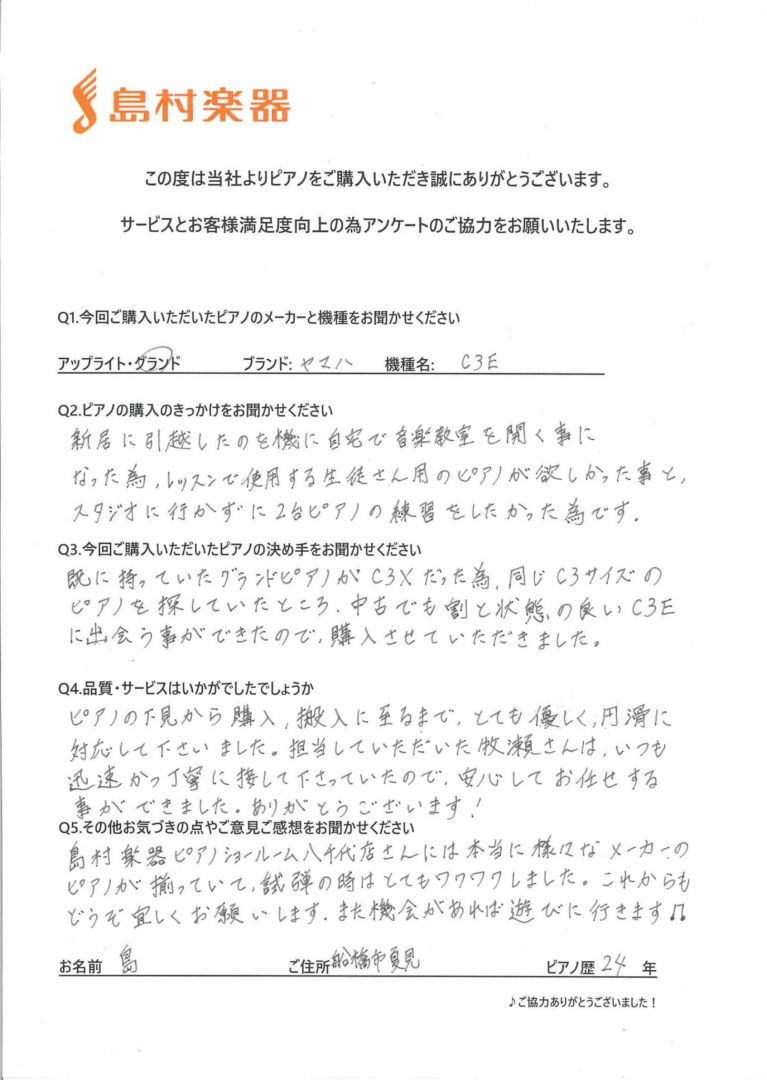 島村楽器
この度は当社よりピアノをご購入いただき誠にありがとうございます。
サービスとお客様満足度向上の為アンケートのご協力をお願いいたします。
Q1.今回ご購入いただいたピアノのメーカーと機種をお聞かせください
アップライト・グランド ブランド: ヤマハ 機種名: C3E
Q2.ピアノの購入のきっかけをお聞かせください
新居に引越したのを機に自宅で音楽教室を開く事に
なった為,レッスンで使用する生徒さん用のピアノが欲しかった事と,
スタジオに行かずに2台ピアノの練習をしたかった為です.
Q3.今回ご購入いただいたピアノの決め手をお聞かせください
既に持っていたグランドピアノがC3Xだった為,同じC3サイズの
ピアノを探していたところ、中古でも割と状態の良いC3E
に出会う事ができたので,購入させていただきました。
Q4.品質・サービスはいかがでしたでしょうか
ピアノの下見から購入,搬入に至るまで,とても優しく,円滑に
対応して下さいました。担当していただいた牧瀬さんは,いつも
迅速かつ丁寧に接して下さっていたので,安心してお任せする
事ができました。ありがとうございます!
Q5.その他お気づきの点やご意見ご感想をお聞かせください
島村楽器ピアノショールーム八千代店さんには本当に様々なメーカーの
ピアノが揃っていて,試弾の時はとてもワクワクしました。これからも
どうぞ宜しくお願いします.また機会があれば遊びに行きます♫
お名前 島 ご住所 船橋市夏見 ピアノ歴 24 年
♪ご協力ありがとうございました！